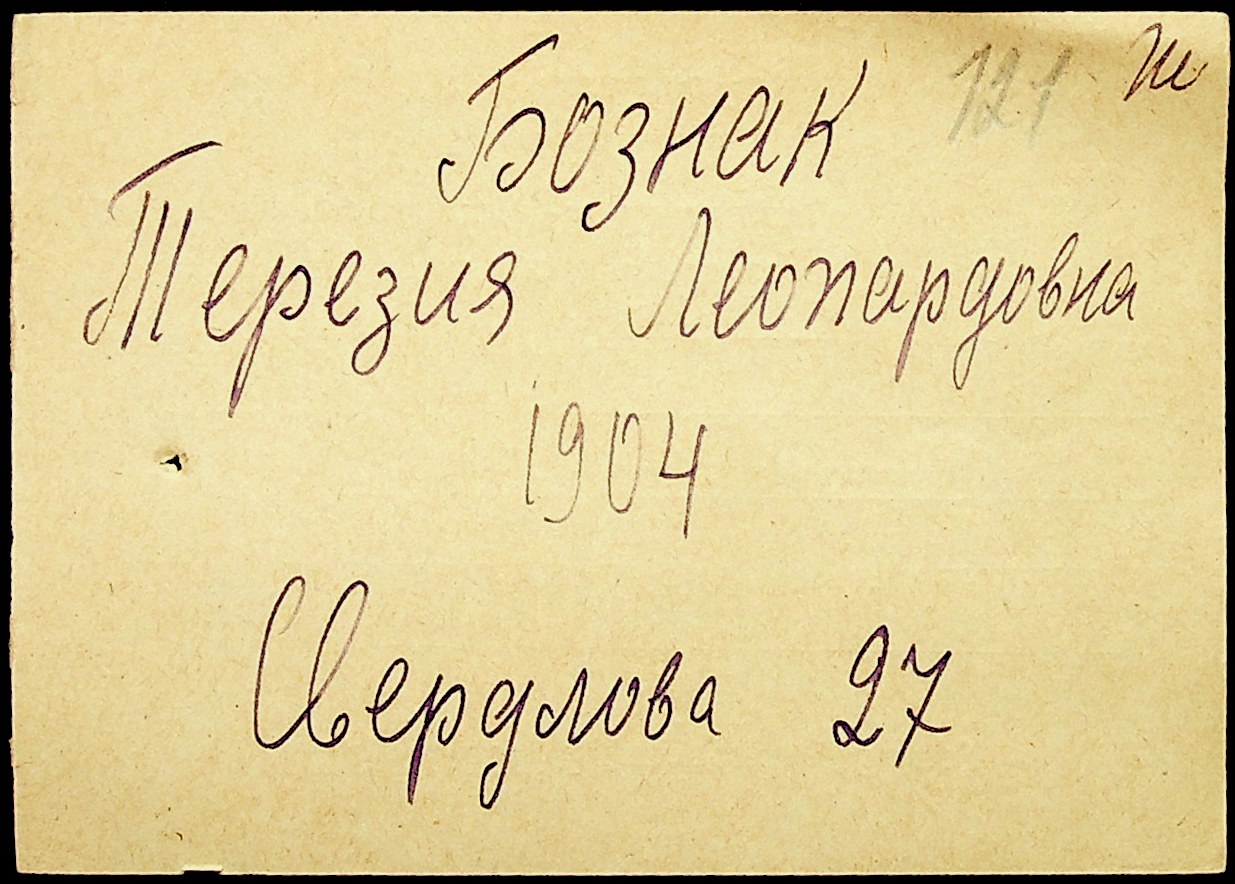 Бознак
121
Терезия Леопардовна
1904
Свердлова 27